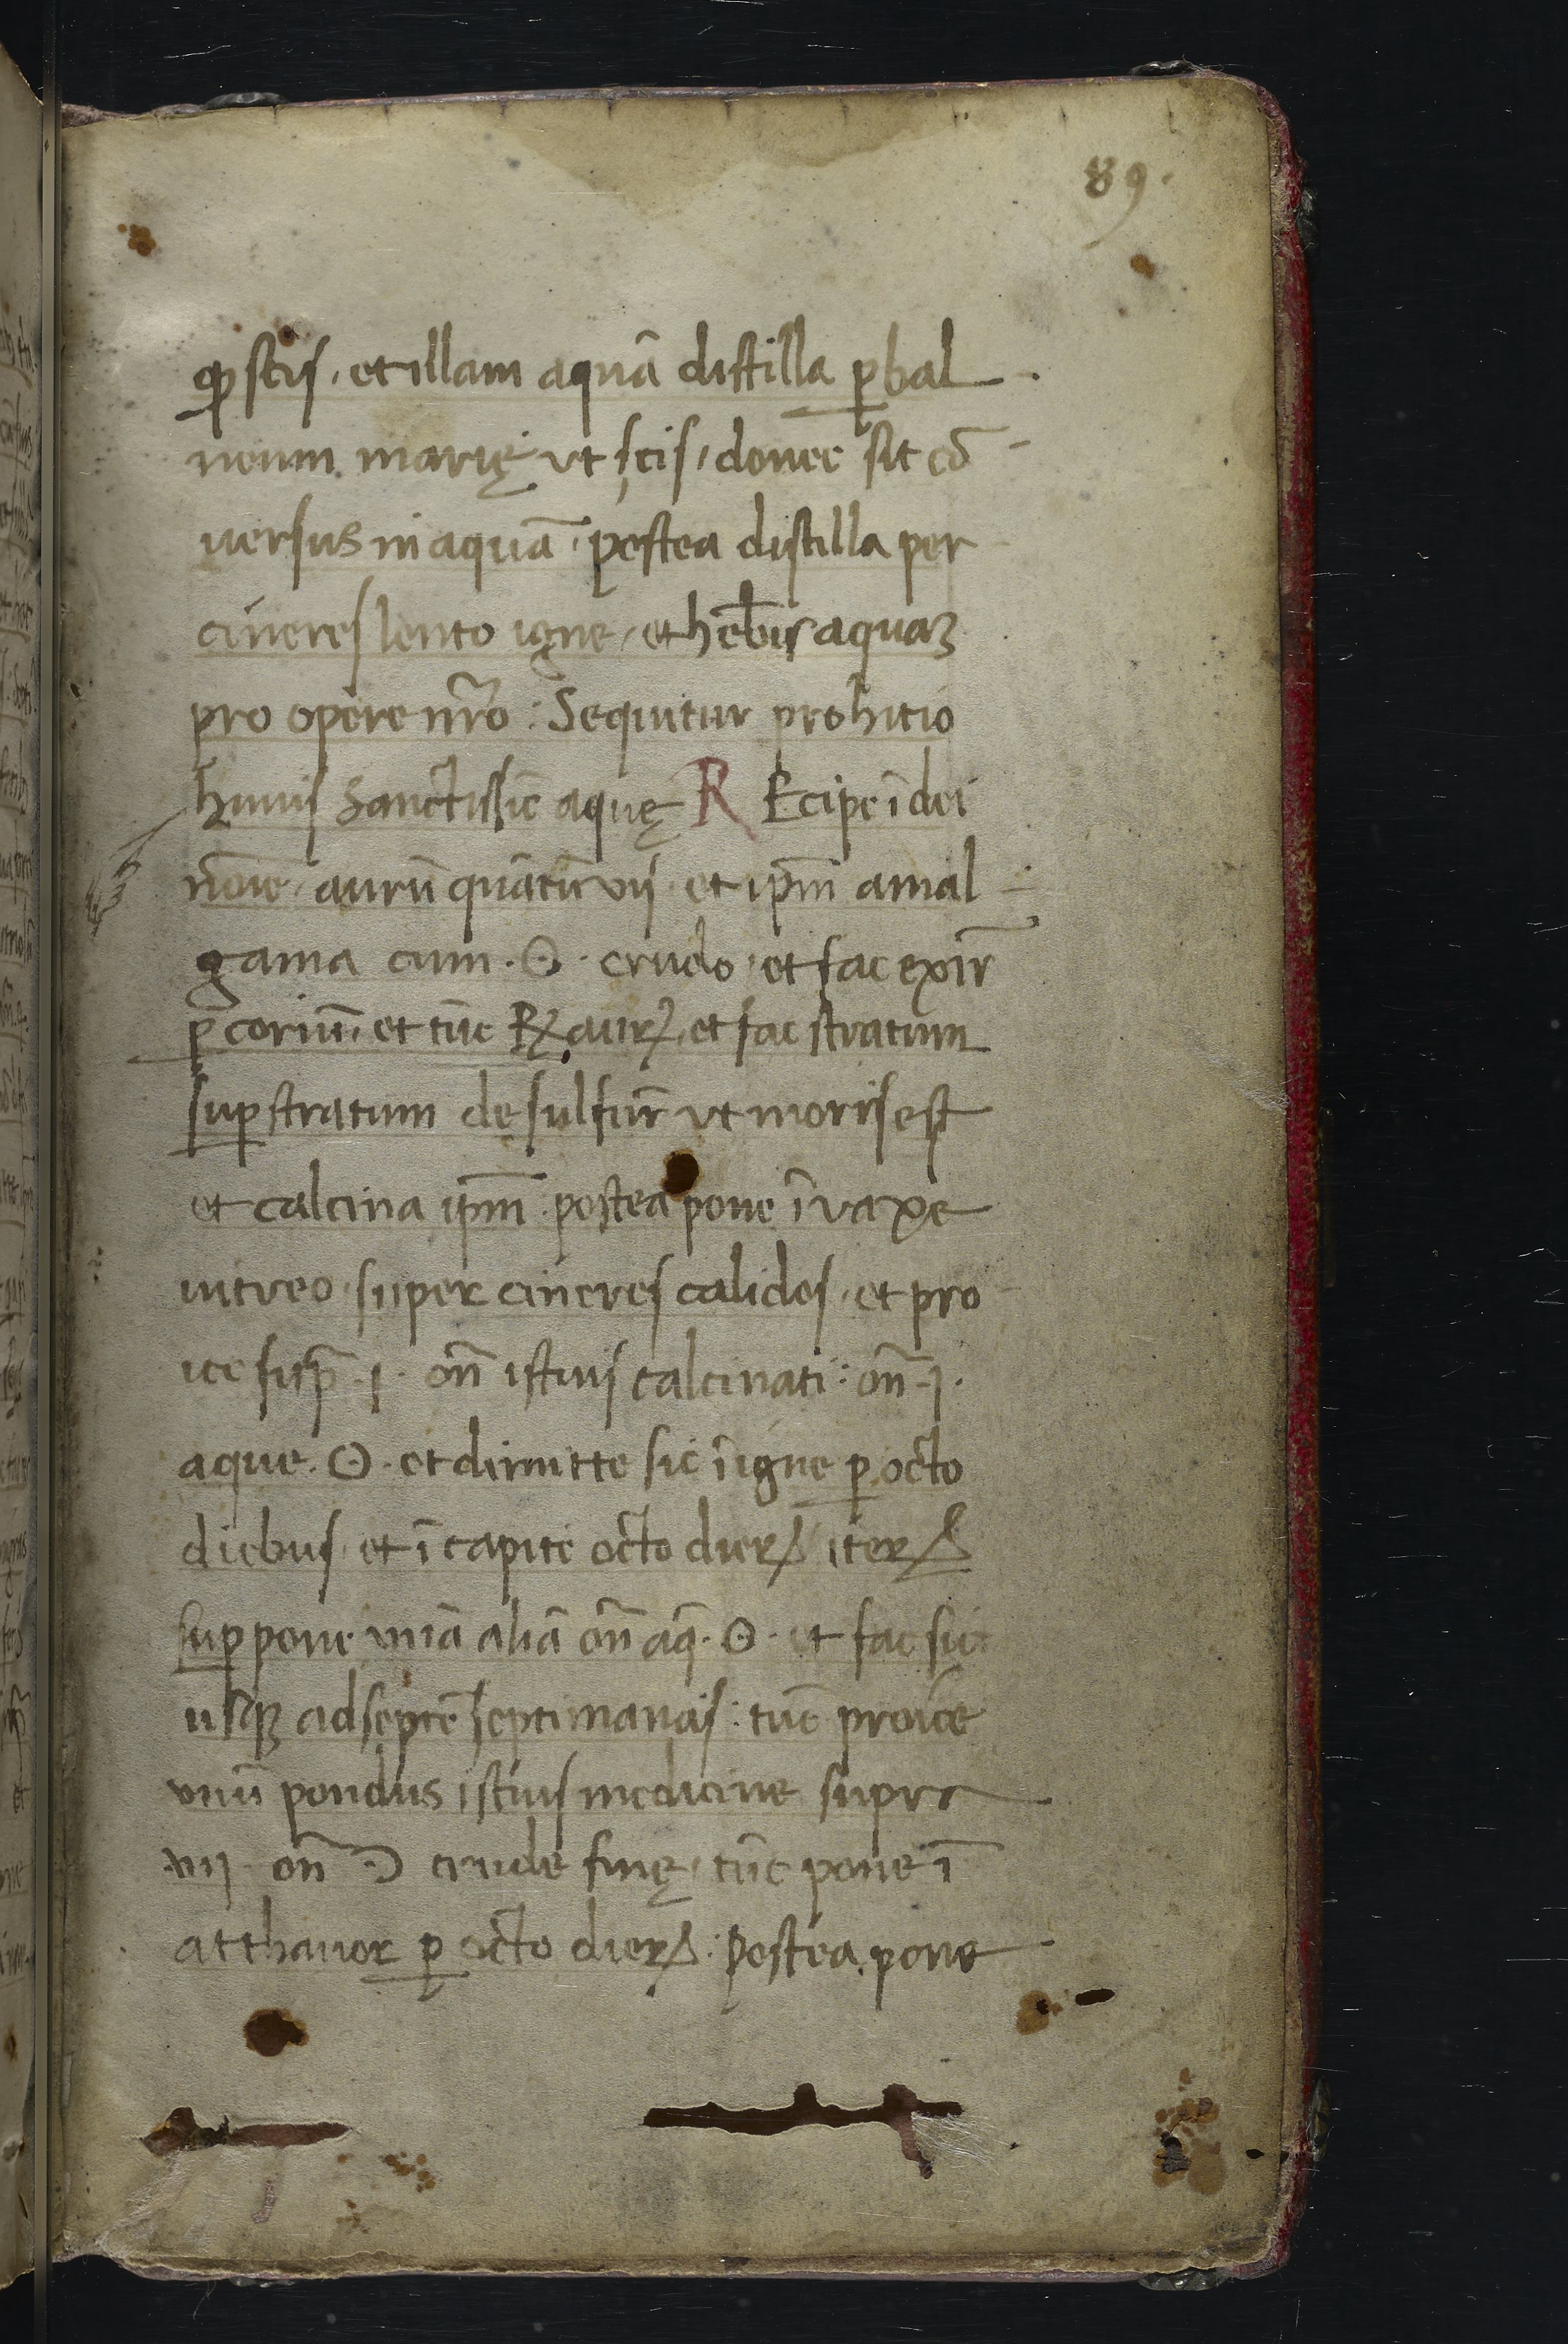 89.
ꝙ scis, et illam aquā distilla ꝑbal-
neum. marię vt scis, donec sit cō-
uersus in aquā. postea distilla per
cineres lento igne, et hēbis aquaꝫ
pro opere nr̄o: Sequitur prohitio
huius Sanctissīe aquę R Ecipe ī dei
nōie, aurū quātū vij. et ip̄m amal-
gama cum. ☉. crudo, et fac exir̄
ꝑ coriū, et tūc ℞ aurꝝ, et fac stratum
suꝑ stratum de sulfur̄ vt moris est
et calcina ip̄m. postea pone ī vaxe
uitreo, super cineres calidos, et pro
ice sup̄. j. on̄ istius calcinati: on̄. j.
aque. ☉. et dimitte sic ī igne ꝑ octo
diebus, et ī capite octo dierꝝ iterꝝ
suꝑpone vnā aliā on̄ aq̄. ☉. et fac sic
usqꝫ ad septē septimanas: tūc proice
vnū pondus istius medicine supra
vij. on̄ ☽ crude finę, tūc pone ī
atthanor ꝑ octo dierꝝ: postea pone